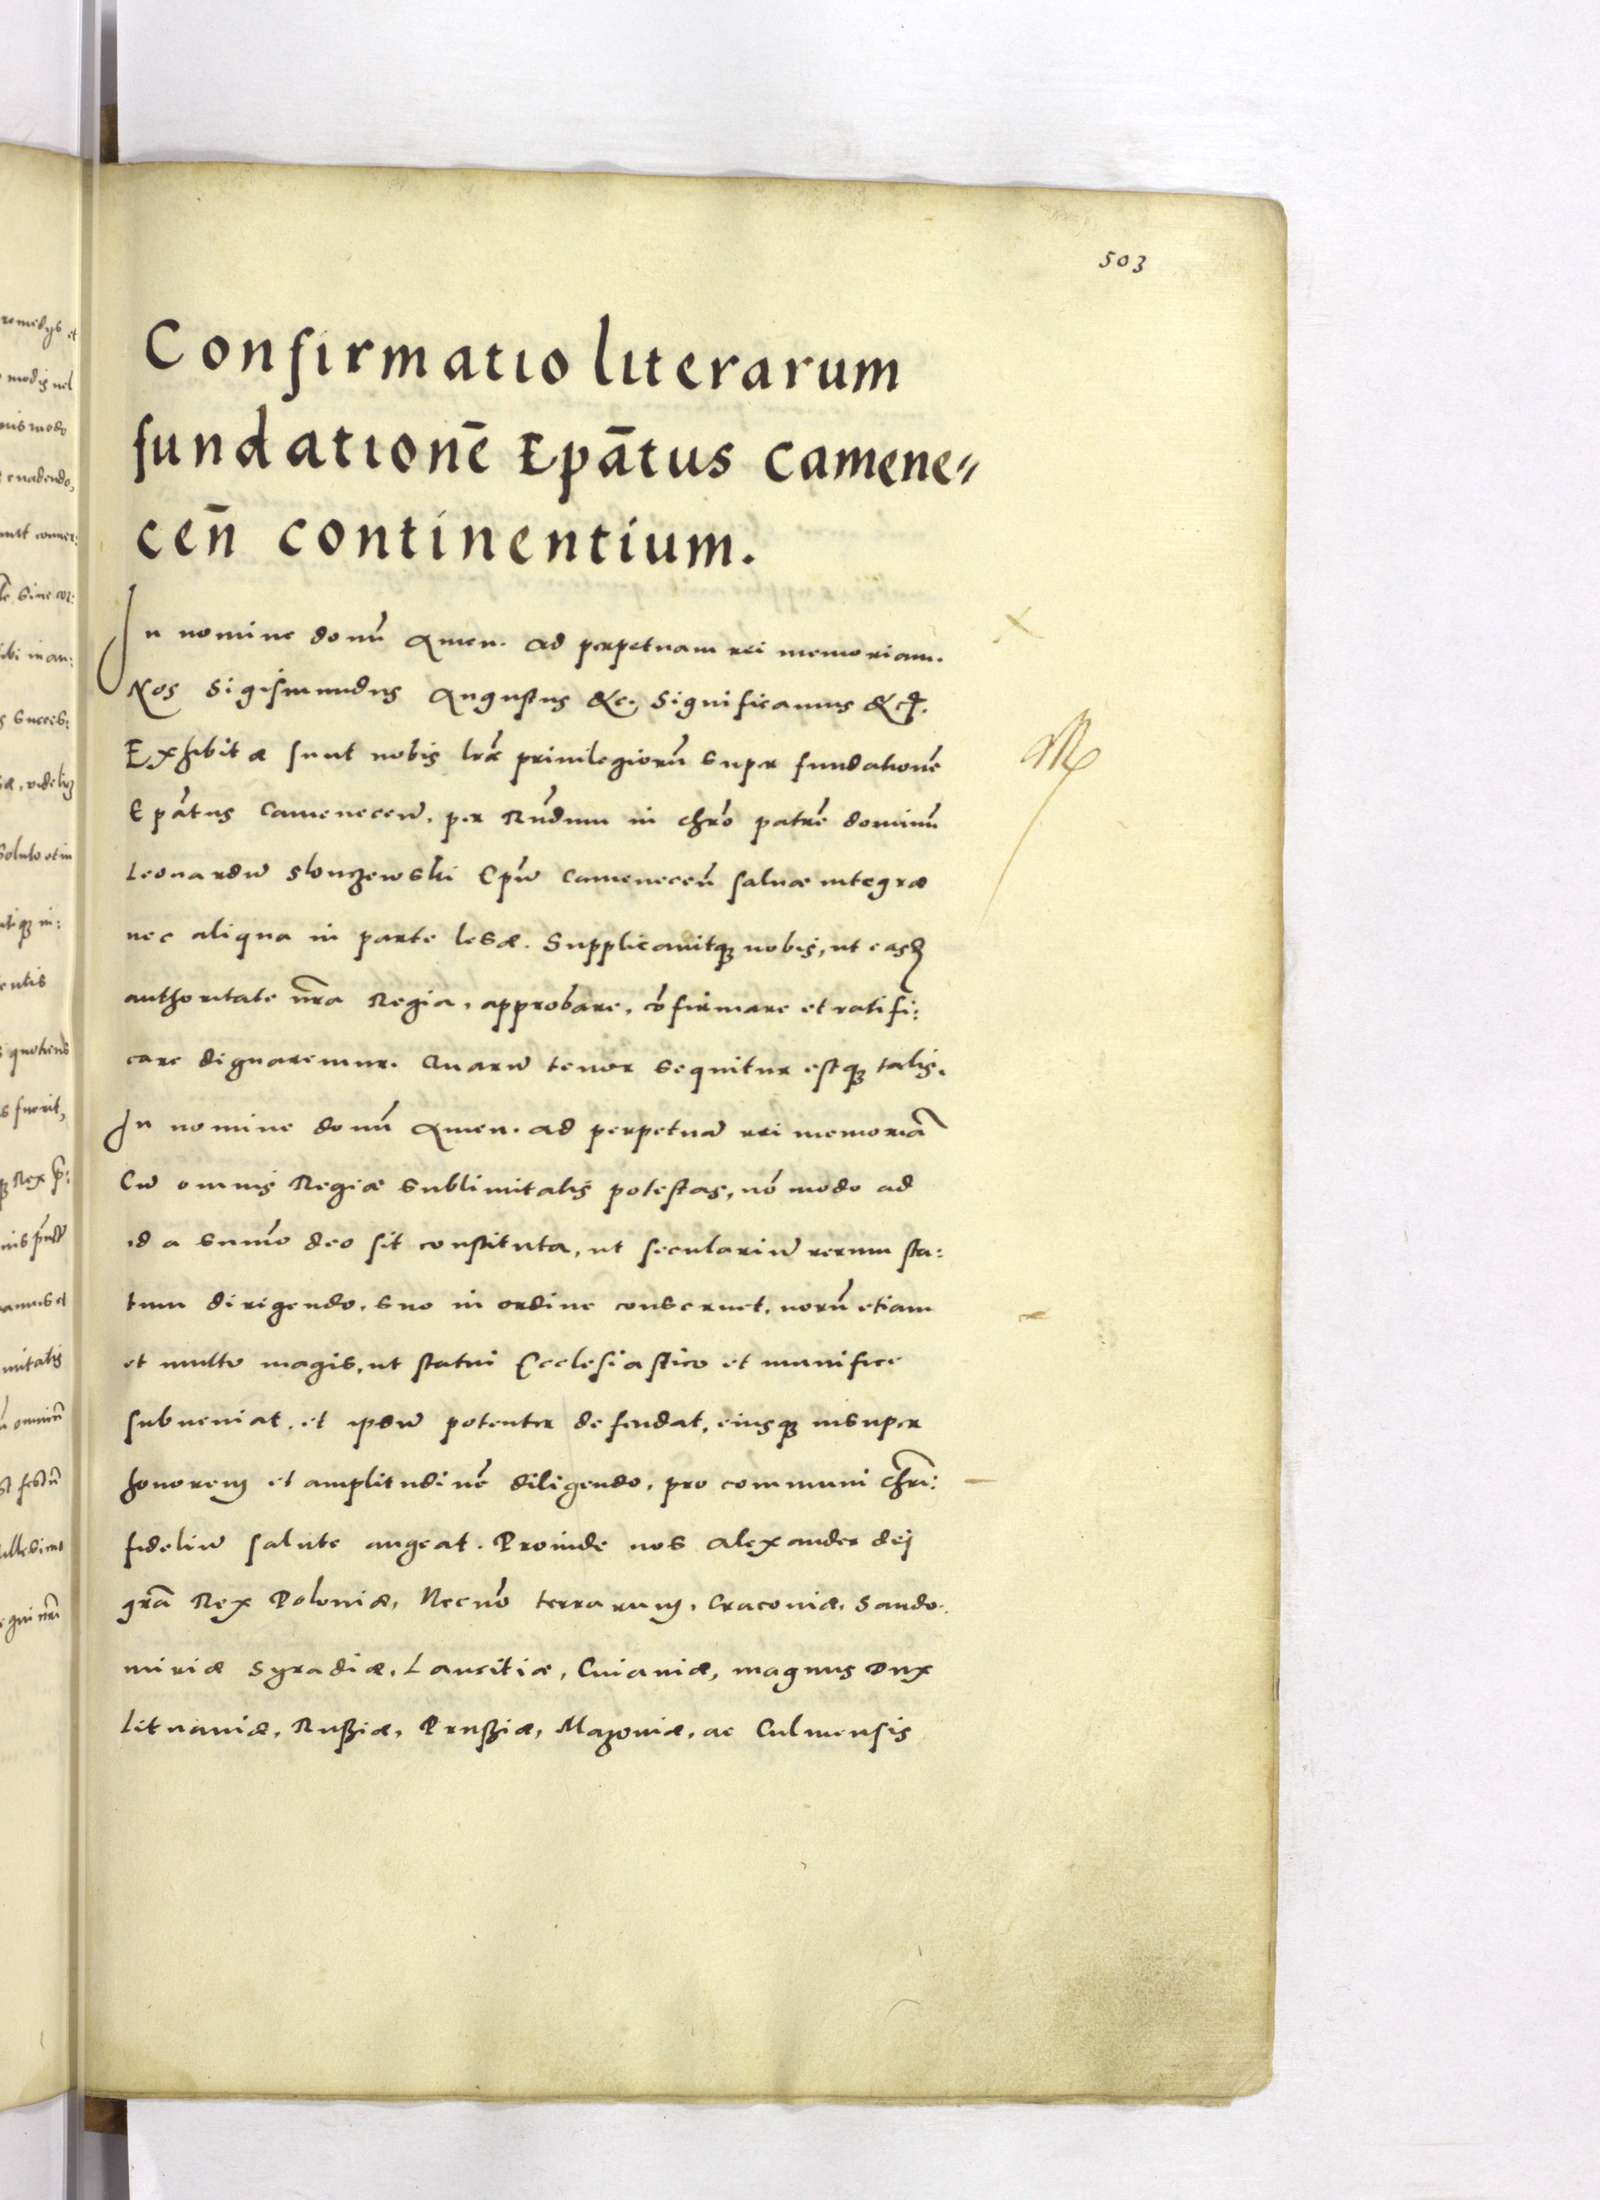 503
Confirmatio literarum
fundationē Epātus Camene〃
ceñ continentium.
In nomine domĩ Amen. Ad perpetuam rei memoriam.
Nos Sigismundus Augustus &c. Significamus &c.
Exhibitæ sunt nobis lræ priuilegiorũ super fundationē
Epātus Camenecen̄, per Rñdum in chro patrē dominũ
Leonardū Slonczewski Epū Camenecen̄ saluæ integræ
nec aliqua in parte lesæ. Supplicauitq; nobis, ut easd
authoritate nrā Regia, approbare, cōfirmare et ratifi:
care dignaremur. Quarū tenor sequitur estq; talis.
In nomine domĩ Amen. Ad perpetuā rei memoriā
Cū omnis Regiæ sublimitatis potestas, nō modo ad
id a sum̄o deo sit constituta, ut seculariū rerum sta:
tum dirigendo, suo in ordine conseruet, uerũ etiam
et multo magis, ut statui Ecclesiastico et munifice
subueniat, et ipsū potenter defendat, eiusq; insuper
honorem et amplitudinē diligendo, pro communi chri:
fideliū salute augeat. Proinde nos Alexander dej
grā Rex Poloniæ, Necnō terrarum, Cracoviæ, Sando:
miriæ Syradiæ, Lancitiæ, Cuiauiæ, magnus Dux
Lituaniæ, Rußiæ, Prußiæ, Mazouiæ, ac Culmensis